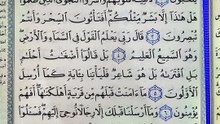 هَلْ هَٰذَا إِلَّا بَشَرٌ مِّثْلُكُمْ أَفَتَأْتُونَ ٱلسِّحْرَ وَأَنتُمْ
تُبْصِرُونَ ٣ قَالَ رَبِّي يَعْلَمُ ٱلْقَوْلَ فِي ٱلسَّمَاءِ وَٱلْأَرْضِ
وَهُوَ ٱلسَّمِيعُ ٱلْعَلِيمُ ٤ بَلْ قَالُوٓا۟ أَضْغَٰثُ أَحْلَٰمٍ
بَلِ ٱفْتَرَىٰهُ بَلْ هُوَ شَاعِرٌ فَلْيَأْتِنَا بِـَٔايَةٍ كَمَآ أُرْسِلَ
ٱلْأَوَّلُونَ ٥ مَآ ءَامَنَتْ قَبْلَهُم مِّن قَرْيَةٍ أَهْلَكْنَٰهَآ أَفَهُمْ
يُؤْمِنُونَ ٦ وَمَآ أَرْسَلْنَا قَبْلَكَ إِلَّا رِجَالًا نُّوحِيٓ إِلَيْهِمْ فَسْـَٔلُوٓا۟